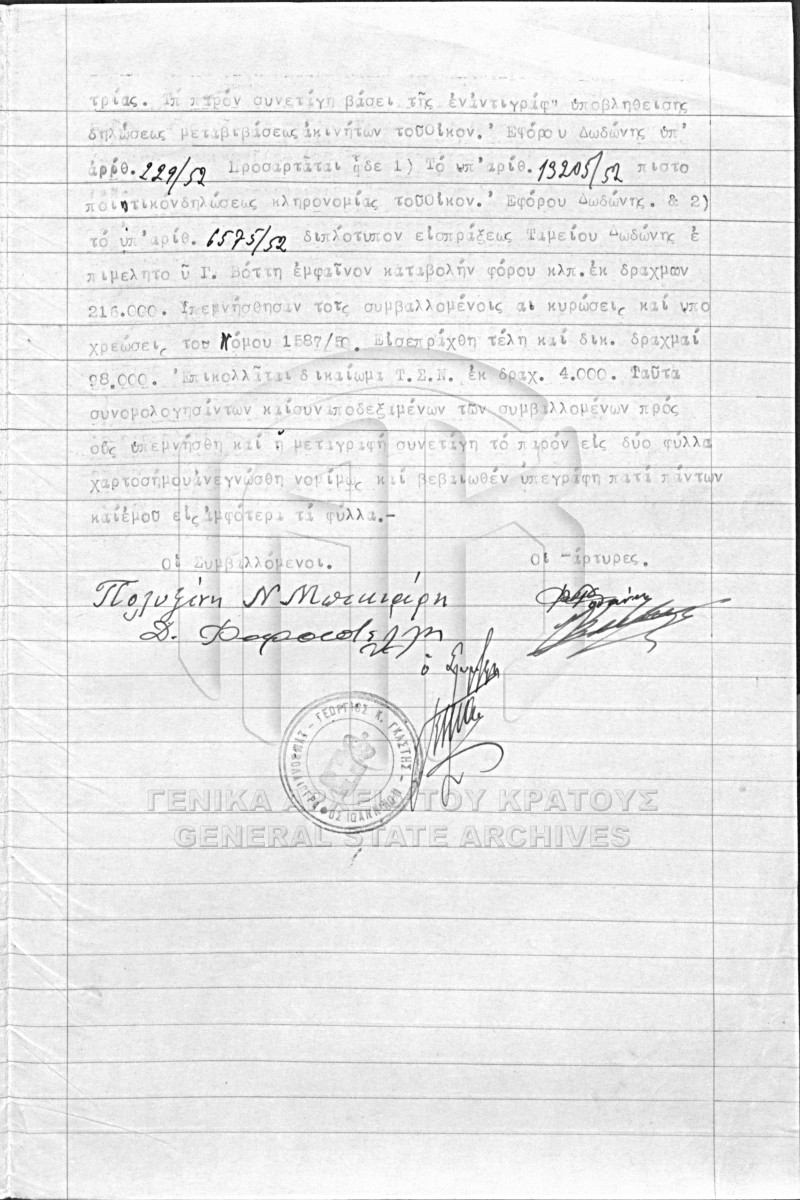 τρίας. Τό παρόν συνετάγη βάσει τῆς ἐνἀντιγράφῳ ὑποβληθείσης
δηλώσεως μεταβιβάσεως ἀκινήτων τοῦΟἰκον.' Εφόρου Δωδώνης ὑπ'
ἀριθ. 229/52 Προσαρτᾶται ὧδε 1) Τό ὑπ'ἀρίθ. 13205/52 πιστο
ποιητικόνδηλώσεως κληρονομίας τοῦΟἰκον.' Εφόρου Δωδώνης. & 2)
τό ὑπ'ἀρίθ. 6575/52 διπλότυπον εἰσπράξεως Ταμείου Δωδώνης ἐ
πιμελητο ῦ Γ. Βόττη ἐμφαῖνον καταβολήν φόρου κλπ.ἐκ δραχμῶν
216.000. Ὑπεμνήσθησαν τοῖς συμβαλλομένοις αἱ κυρώσεις καί ὑπο
χρεώσεις τοῦ Νόμου 1587/50. Εἰσεπράχθη τέλη καί δικ. δραχμαί
98.000. Ἐπικολλᾶται δικαίωμα Τ.Σ.Ν. ἐκ δραχ. 4.000. Ταῦτα
συνομολογησάντων καίσυναποδεξαμένων τῶν συμβαλλομένων πρός
οὕς ὑπεμνήσθη καί ἡ μεταγραφή συνετάγη τό παρόν εἰς δύο φύλλα
χαρτοσήμουἀνεγνώσθη νομίμως καί βεβαιωθέν ὑπεγράφη παρά πάντων
καίἐμοῦ εἰς ἀμφότερα τά φύλλα.-
Οἱ Συμβαλλόμενοι. Οἱ Μάρτυρες.
Πολυξένη Ν Μπεκιάρη
ὁ Συμβ/φος
ΓΕΩΡΓΙΟΣ Κ. ΓΚΑΣΤΗΣ
ΣΥΜΒΟΛΑΙΟΓΡΑΦΟΣ ΙΩΑΝΝΙΝΩΝ
ΓΕΝΙΚΑ ΑΡΧΕΙΑ ΤΟΥ ΚΡΑΤΟΥΣ
GENERAL STATE ARCHIVES